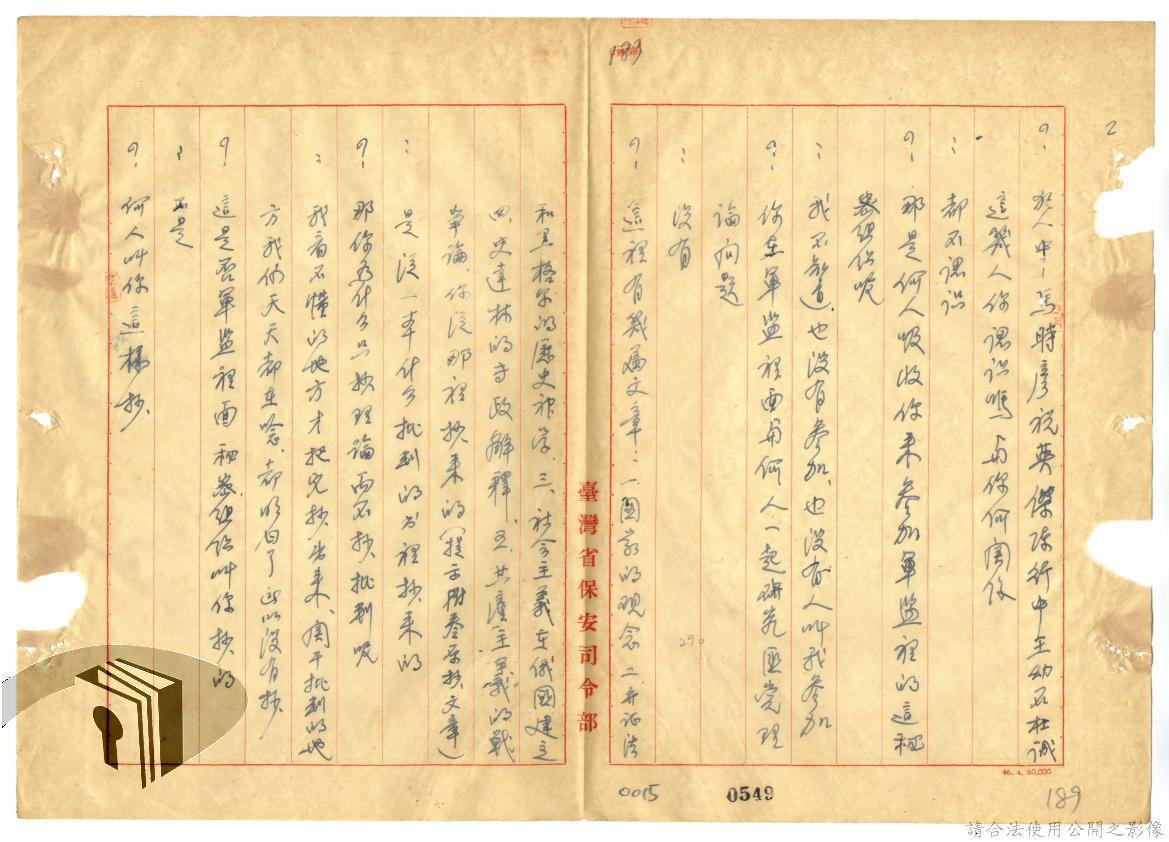 2
189
?: 犯人中:馮時彥祝英傑陳行中王幼石杜誠
這幾人你認識嗎與你何關係
: 都不認識
?: 那是何人吸收你來參加軍監裡的這秘
密組織呢
: 我不知道.也沒有參加.也沒有人叫我參加
?: 你在軍監裡面與何人一起研究匪党理
論問題
: 沒有
?: 這裡有幾篇文章:一國家的观念二.弁証法
和黑格尔的歷史哲学.三.社会主義在俄國建立
四.史達林的 解釋.五.共產主義的戰
爭論.你從那裡抄來的(提示 原抄文章)
: 是從一本什么批判的书裡抄來的
?: 那你為什么只抄理論而不抄批判呢
: 我看不懂的地方才把它抄出來.関于批判的地
方我們天天都在唸.都明白了所以沒有抄
? 這是否軍監裡面秘密組織叫你抄的
: 不是
?: 何人叫你這樣抄
臺灣省保安司令部
46. 4. 50,000
290
0015
0549
189
請合法使用公開之影像